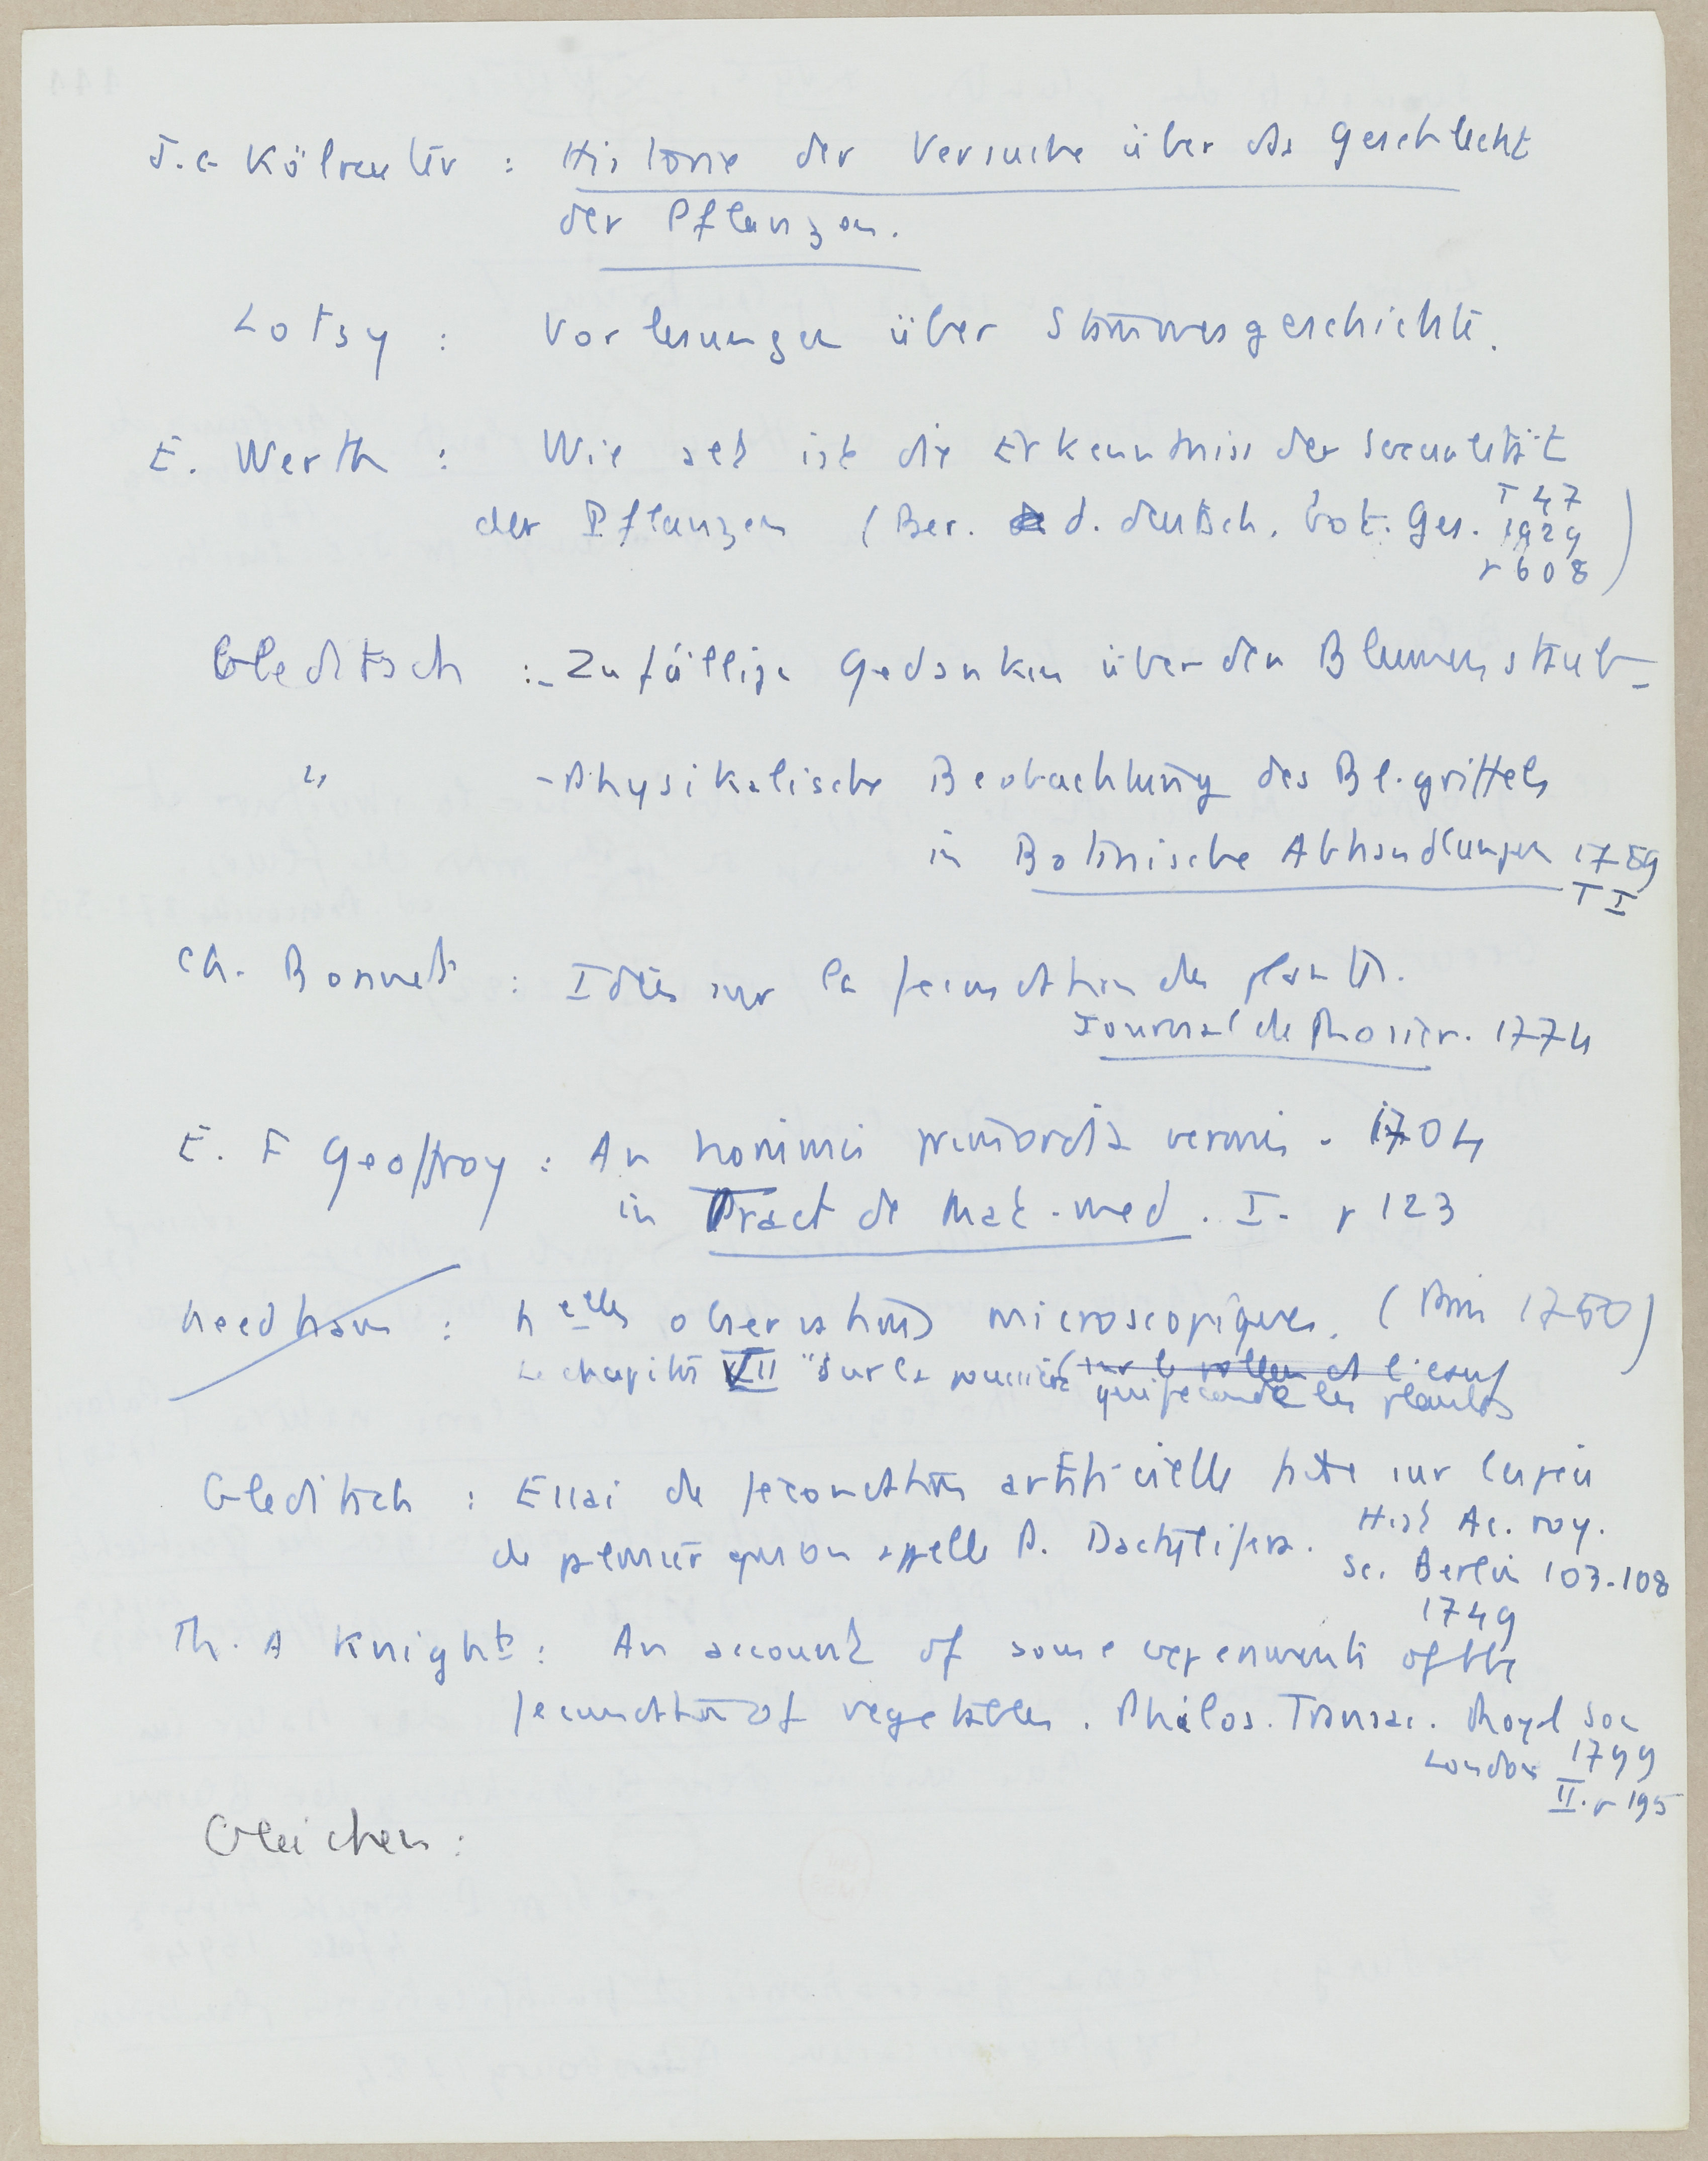 J.G Kölreuter : Historie der Versuche über das Geschlecht
der Pflanzen.
Lotsy : Vorlesungen über Stammesgeschichte.
E. Werth : Wie alt ist die Erkenntniss der Sexualität
der Pflanzen (Ber. d. deutsch. bot. Ges. T 47
1929
p 608)
Gleditsch : - Zufällige Gedanken über den Blumenstaub -
" - Physikalische Beobachtung des Bl. griffels
in Botanische Abhandlungen 1789
T I
Ch. Bonnet : Idées sur la fecondation des plantes.
Journal de Rozier. 1774
E. F Geoffroy : An hominis primordia vermis - 1704
in Tract de Mat. med. I - p 123
Needham : Nelles observations microscopiques. (Paris 1750)
Le chapitre VII "sur la poussière sur le pollen et l'oeuf
qui feconde les plantes
Gleditsch : Essai de fécondation artificielle faite sur l'espèce
de palmier qu'on appelle P. Dactylifera. Hist Ac. roy.
Sc. Berlin 103-108
1749
Th. A Knight : An account of some experiments of the
fecundation of vegetables. Philos. Transac. Royal Soc
London 1799
II. p 195
Gleichen :